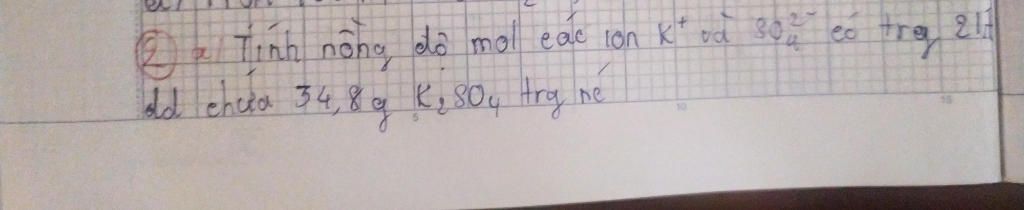 ② a/ Tính nồng độ mol các ion K⁺ và SO₄²⁻ có trg 2 lít
dd chứa 34,8g K₂SO₄ trg nó